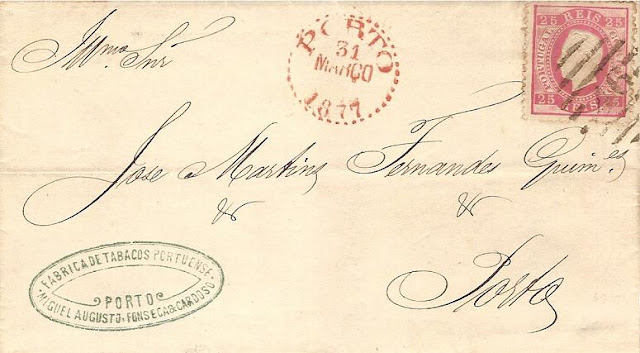 Illmo Snr
PORTO
31
MARÇO
1877
25 REIS 25
PORTUGAL
25 REIS 25
Jose Martins Fernandes Guim.es
& &
Porto
FABRICA DE TABACOS PORTUENSE
PORTO
MIGUEL AUGUSTO, FONSECA & CARDOSO